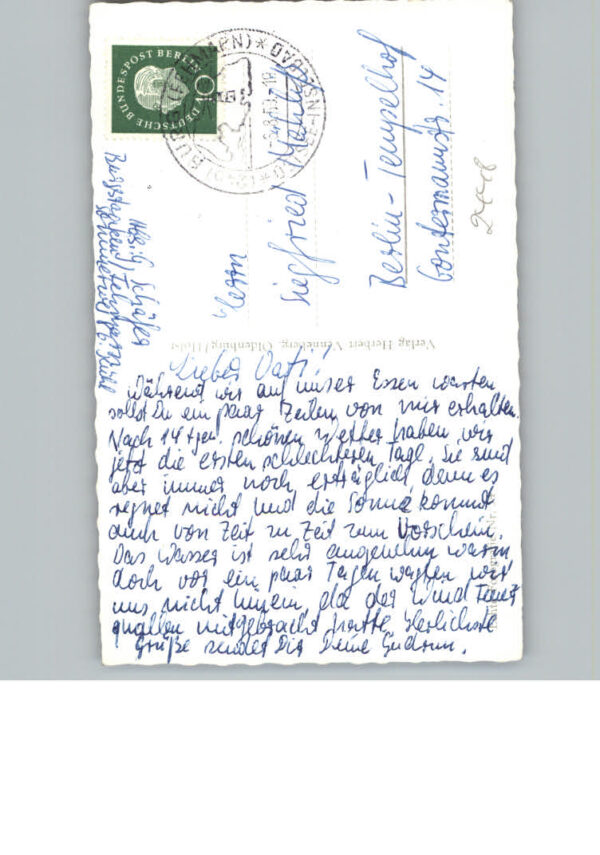 Lieber Vati!
Während wir auf unser Essen warten
sollst Du ein paar Zeilen von mir erhalten.
Nach 14 tgn. schönen Wetter haben wir
jetzt die ersten schlechteren Tage. Sie sind
aber immer noch erträglich, denn es
regnet nicht und die Sonne kommt
auch von Zeit zu Zeit zum Vorschein.
Das Wasser ist sehr angenehm warm
doch vor ein paar Tagen wagten wir
uns nicht hinein, da der Wind Feuer
quallen mitgebracht hatte. Herzlichste
Grüße sendet Dir Deine Gudrun.
Herrn
Siegfried
Berlin-Tempelhof
Gontermannstr. 14
2008
Schäfer
DEUTSCHE BUNDESPOST BERLIN
10
Verlag Herbert Venneberg, Oldenburg/Holst